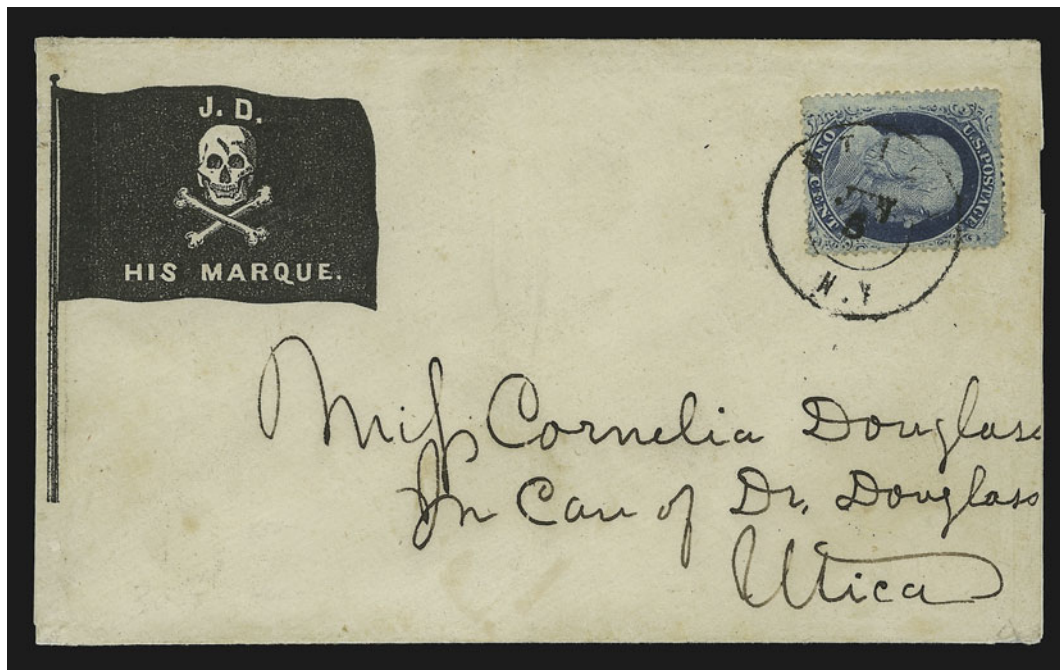 J. D.
HIS MARQUE.
U.S. POSTAGE
ONE CENT
N.Y
Miss Cornelia Douglass
In Care of Dr. Douglass
Utica